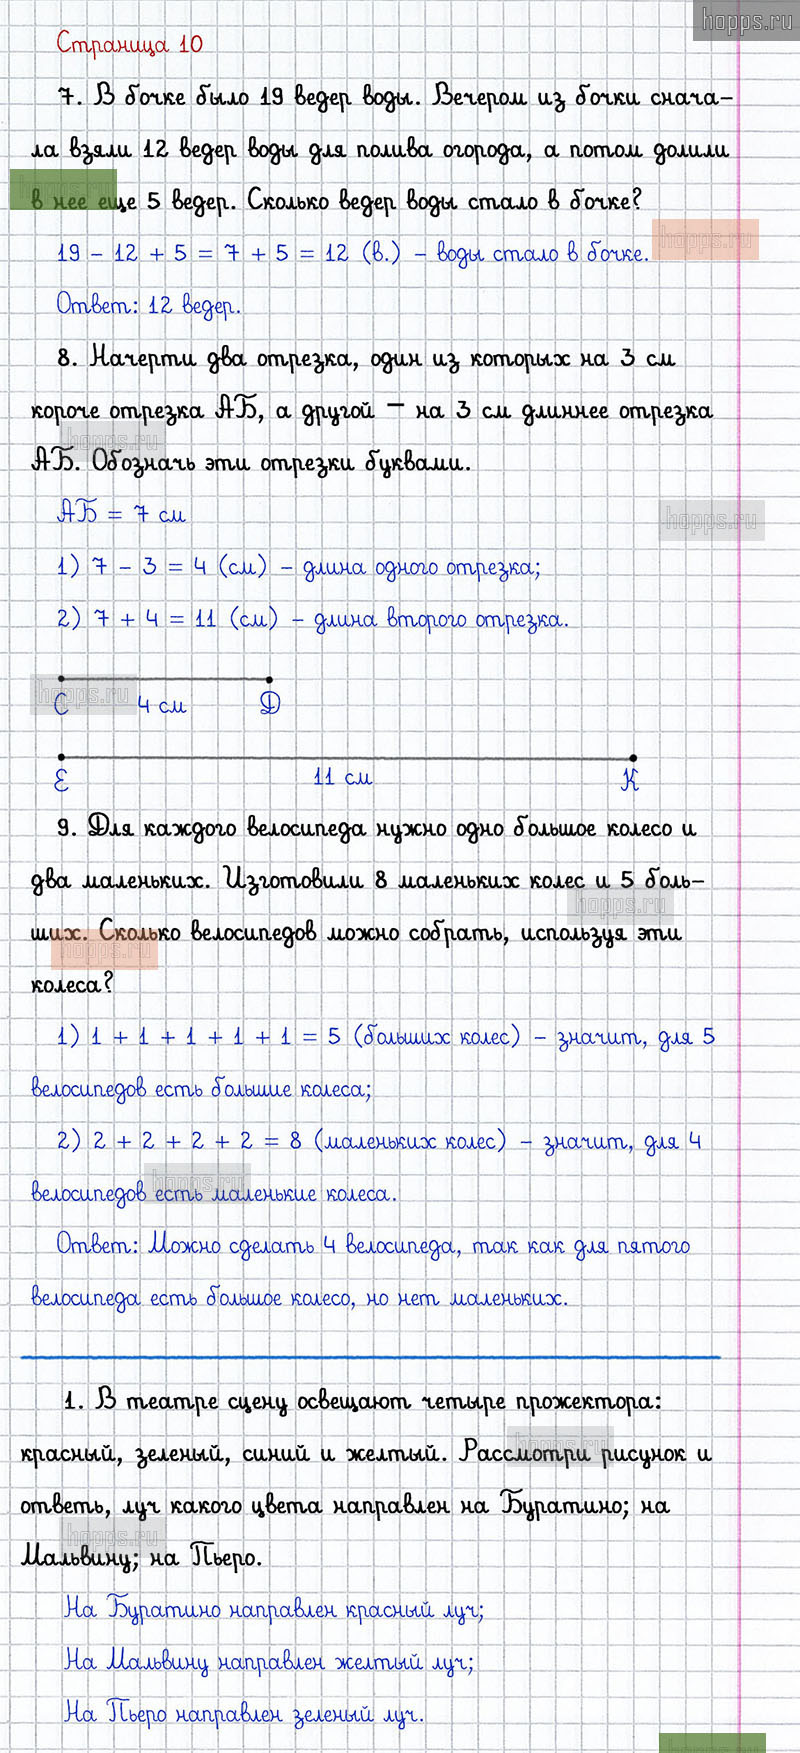 hopps.ru
Страница 10
7. В бочке было 19 ведер воды. Вечером из бочки снача-
ла взяли 12 ведер воды для полива огорода, а потом долили
в нее еще 5 ведер. Сколько ведер воды стало в бочке?
hopps.ru
hopps.ru
19 - 12 + 5 = 7 + 5 = 12 (в.) - воды стало в бочке.
Ответ: 12 ведер.
8. Начерти два отрезка, один из которых на 3 см
короче отрезка АБ, а другой - на 3 см длиннее отрезка
hopps.ru
АБ. Обозначь эти отрезки буквами.
АБ = 7 см
hopps.ru
1) 7 - 3 = 4 (см) - длина одного отрезка;
2) 7 + 4 = 11 (см) - длина второго отрезка.
hopps.ru
С 4 см Д
Е 11 см К
9. Для каждого велосипеда нужно одно большое колесо и
два маленьких. Изготовили 8 маленьких колес и 5 боль-
hopps.ru
ших. Сколько велосипедов можно собрать, используя эти
hopps.ru
колеса?
1) 1 + 1 + 1 + 1 + 1 = 5 (больших колес) - значит, для 5
велосипедов есть большие колеса;
2) 2 + 2 + 2 + 2 = 8 (маленьких колес) - значит, для 4
hopps.ru
велосипедов есть маленькие колеса.
Ответ: Можно сделать 4 велосипеда, так как для пятого
велосипеда есть большое колесо, но нет маленьких.
1. В театре сцену освещают четыре прожектора:
hopps.ru
красный, зеленый, синий и желтый. Рассмотри рисунок и
ответь, луч какого цвета направлен на Буратино; на
hopps.ru
Мальвину; на Пьеро.
На Буратино направлен красный луч;
На Мальвину направлен желтый луч;
На Пьеро направлен зеленый луч.